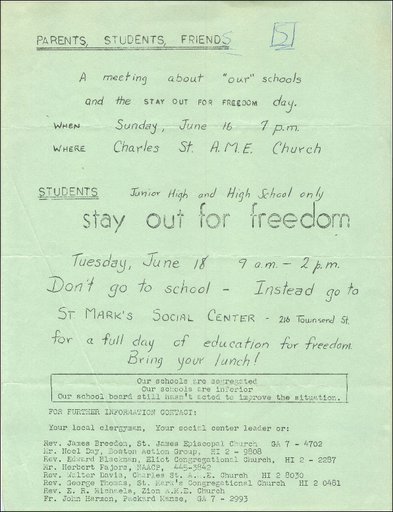 PARENTS, STUDENTS, FRIENDS
5
A meeting about "our" schools
and the STAY OUT FOR FREEDOM day.
WHEN Sunday, June 16 7 p.m.
WHERE Charles St. A.M.E. Church
STUDENTS Junior High and High School only
stay out for freedom
Tuesday, June 18 9 a.m. - 2 p.m.
Don't go to school - Instead go to
ST MARK'S SOCIAL CENTER - 216 Townsend St.
for a full day of education for freedom.
Bring your lunch!
Our schools are segregated
Our schools are inferior
Our school board still hasn't acted to improve the situation.
FOR FURTHER INFORMATION CONTACT:
Your local clergyman, Your social center leader or:
Rev. James Breeden, St. James Episcopal Church GA 7 - 4702
Mr. Noel Day, Boston Action Group, HI 2 - 9808
Rev. Edward Blackman, Eliot Congregational Church, HI 2 - 2287
Mr. Herbert Fajors, NAACP, 445-3842
Rev. Walter Davis, Charles St. A.M.E. Church HI 2 8030
Rev. George Thomas, St. Mark's Congregational Church HI 2 0481
Rev. E. R. Michaels, Zion A.M.E. Church
Fr. John Harmon, Packard Manse, GA 7 - 2993